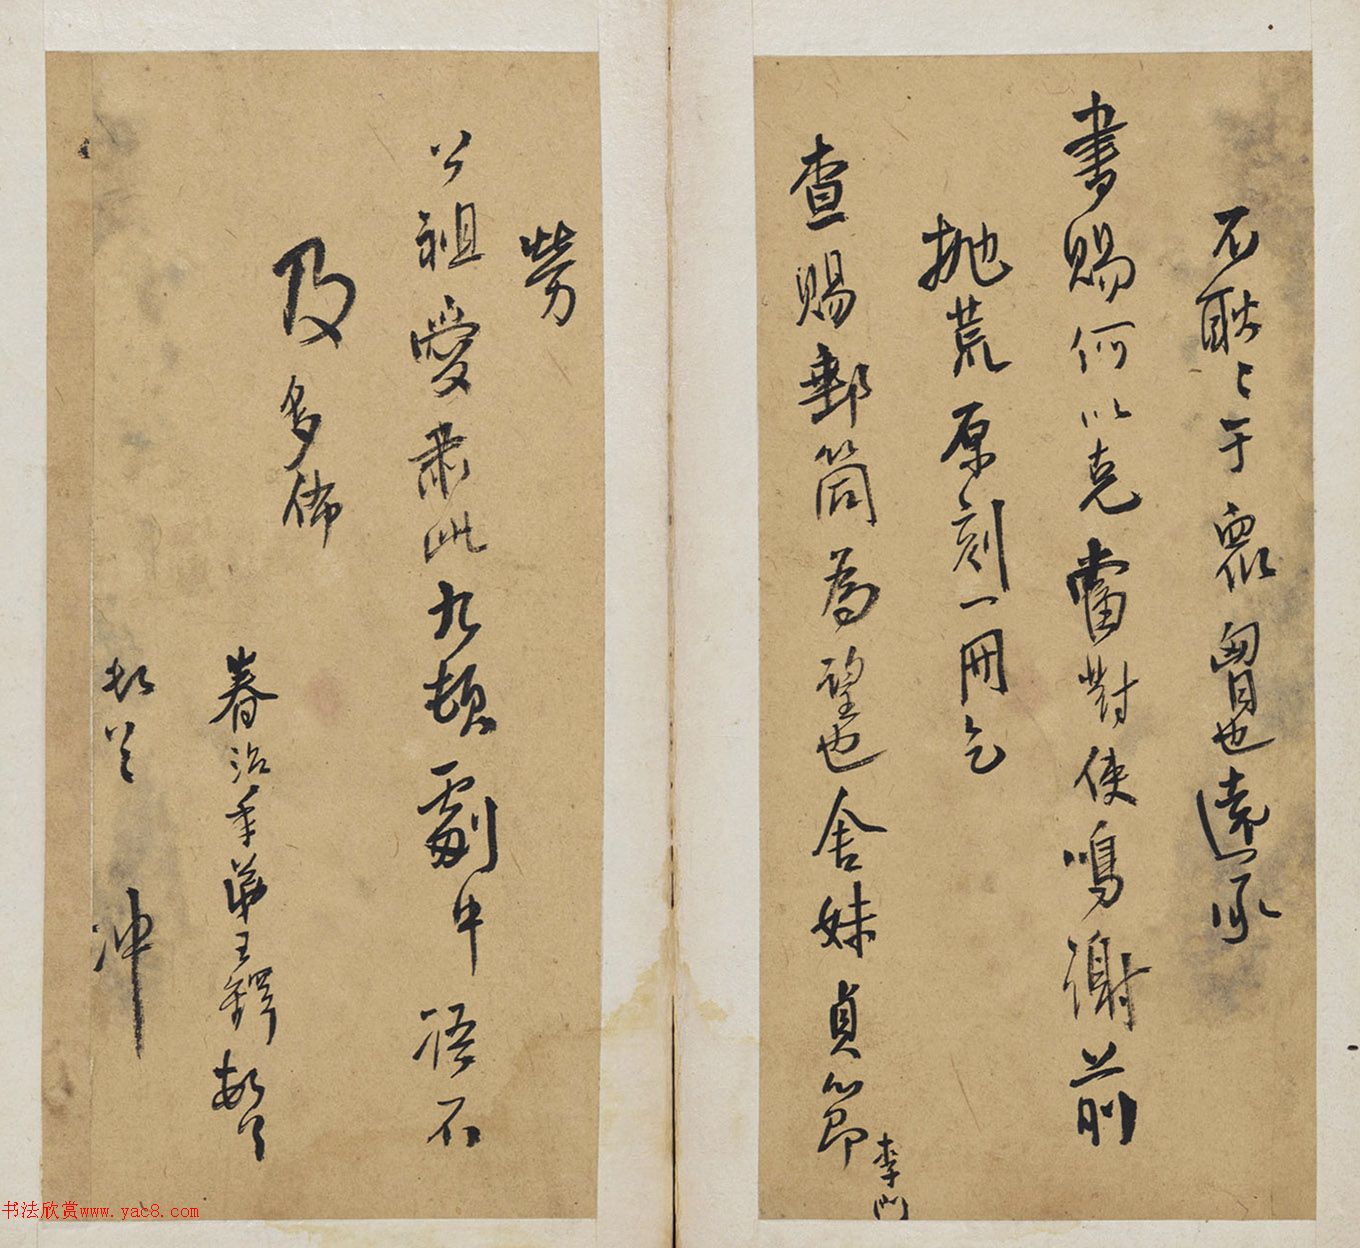 不耿〻于眾胷也遠承
書賜何以克當對使鳴謝前
拋荒原刻一冊乞
查賜郵筒為望也舍妹貞節
李門
勞
公祖愛肅此九頓劇中語不
及多佈
春治年弟王鐸頓首
冲
书法欣赏www.yac8.com